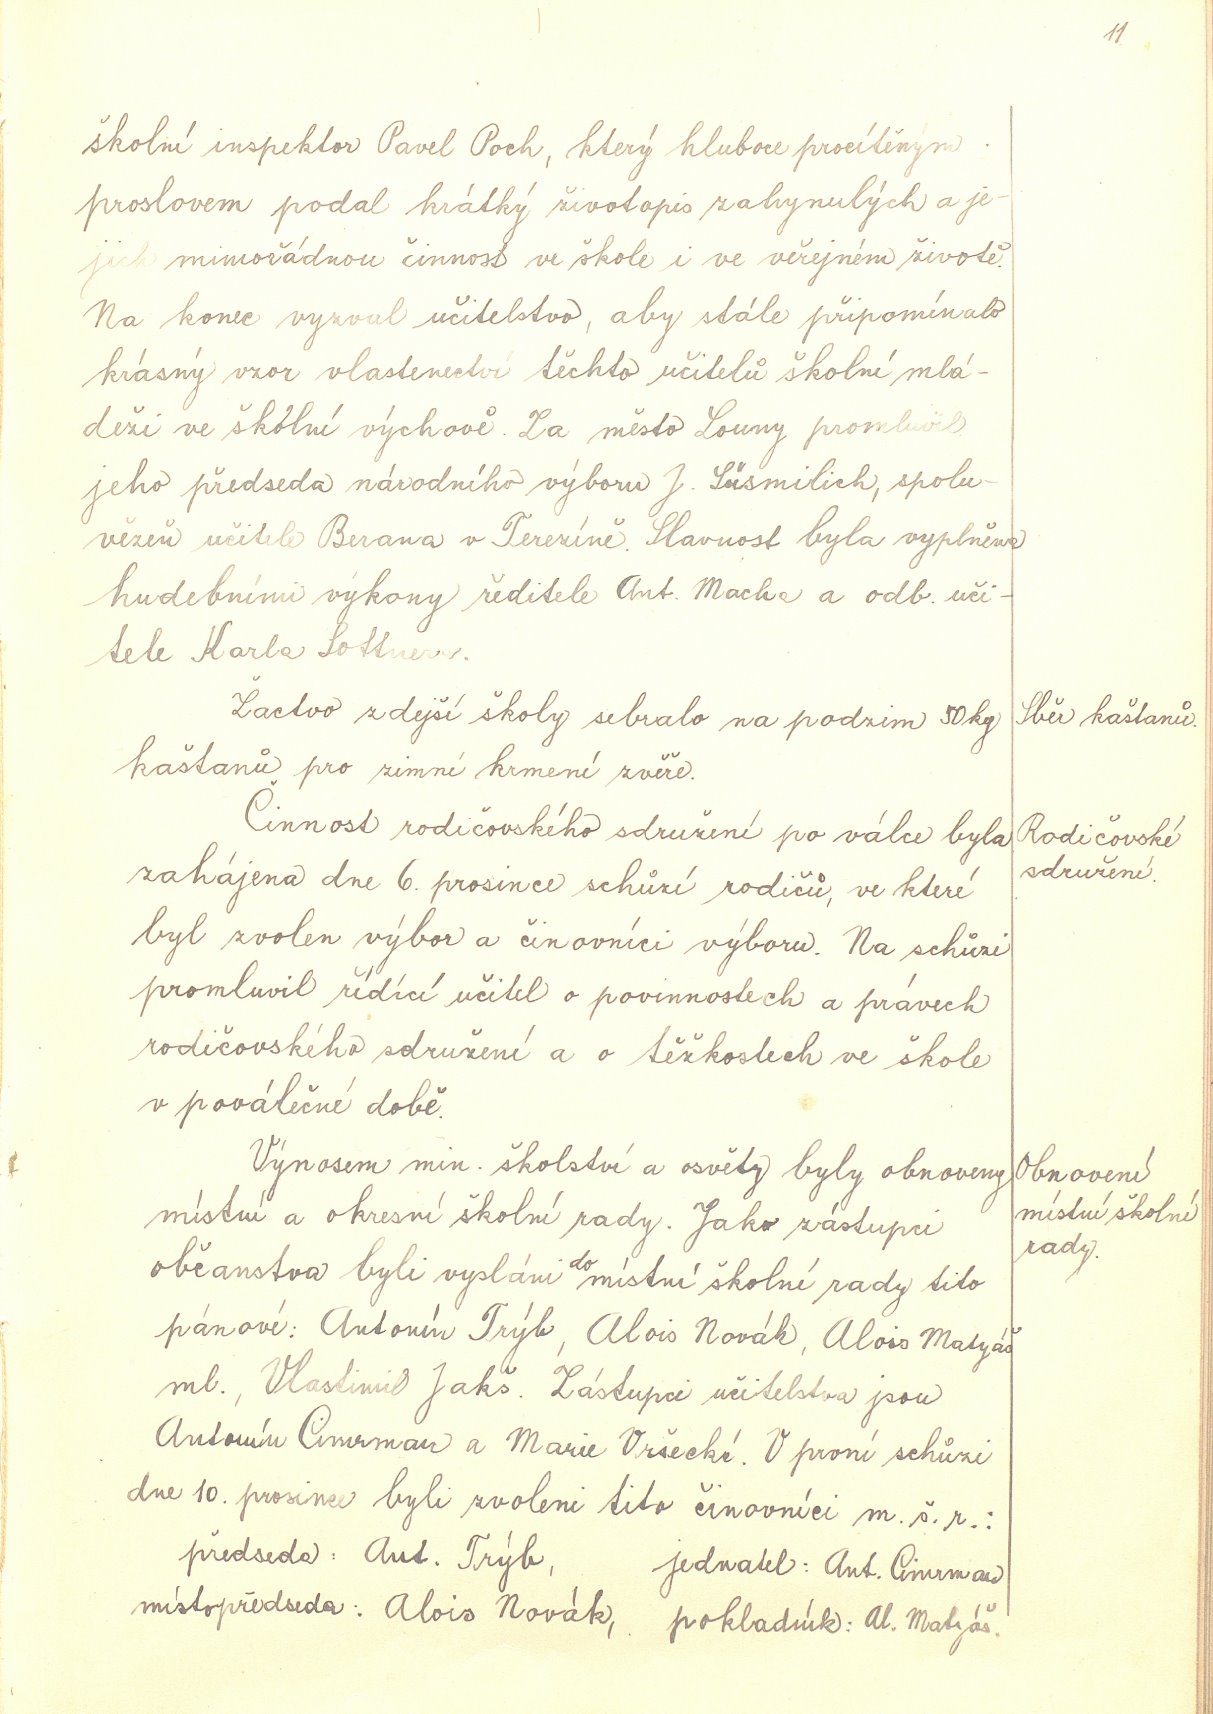 11
školní inspektor Pavel Poch, který hluboce procítěným
proslovem podal krátký životopis zahynulých a je-
jich mimořádnou činnost ve škole i ve veřejném životě.
Na konec vyzval učitelstvo, aby stále připomínalo
krásný vzor vlastenectví těchto učitelů školní mlá-
deži ve školní výchově. Za město Louny promluvil
jeho předseda národního výboru J. Süsmilich, spolu-
vězeň učitele Berana v Terezíně. Slavnost byla vyplněna
hudebními výkony ředitele Ant. Macha a odb. uči-
tele Karla Sottnera.
Žactvo zdejší školy sebralo na podzim 50 kg
kaštanů pro zimní krmení zvěře.
Sběr kaštanů.
Činnost rodičovského sdružení po válce byla
zahájena dne 6. prosince schůzí rodičů, ve které
byl zvolen výbor a činovníci výboru. Na schůzi
promluvil řídící učitel o povinnostech a právech
rodičovského sdružení a o těžkostech ve škole
v poválečné době.
Rodičovské
sdružení.
Výnosem min. školství a osvěty byly obnoveny
místní a okresní školní rady. Jako zástupci
občanstva byli vysláni do místní školní rady tito
pánové: Antonín Trýb, Alois Novák, Alois Matyáš
ml., Vlastimil Jakš. Zástupci učitelstva jsou
Antonín Cimrman a Marie Vršecká. V první schůzi
dne 10. prosince byli zvoleni tito činovníci m. š. r.:
předseda: Ant. Trýb, jednatel: Ant. Cimrman
místopředseda: Alois Novák, pokladník: Al. Matyáš.
Obnovení
místní školní
rady.